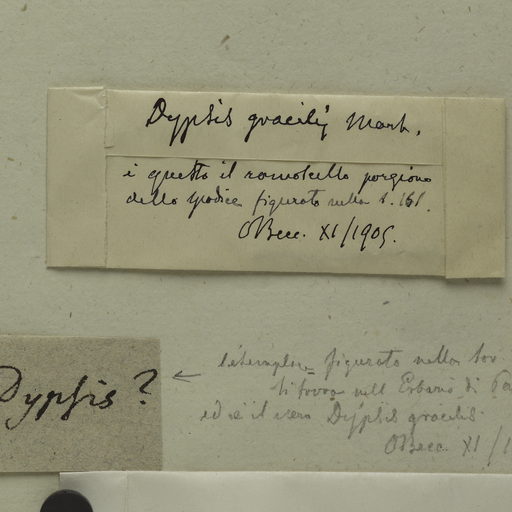 Dypsis gracilis Mart.
è questo il ramoscello porzione
dello spadice figurato nella t. 161.
OBecc. XI/1905.
Dypsis?
← l'esemplare figurato nella tav
si trova nell Erbario di Pa
ed è il vero Dypsis gracilis
OBecc. XI/1